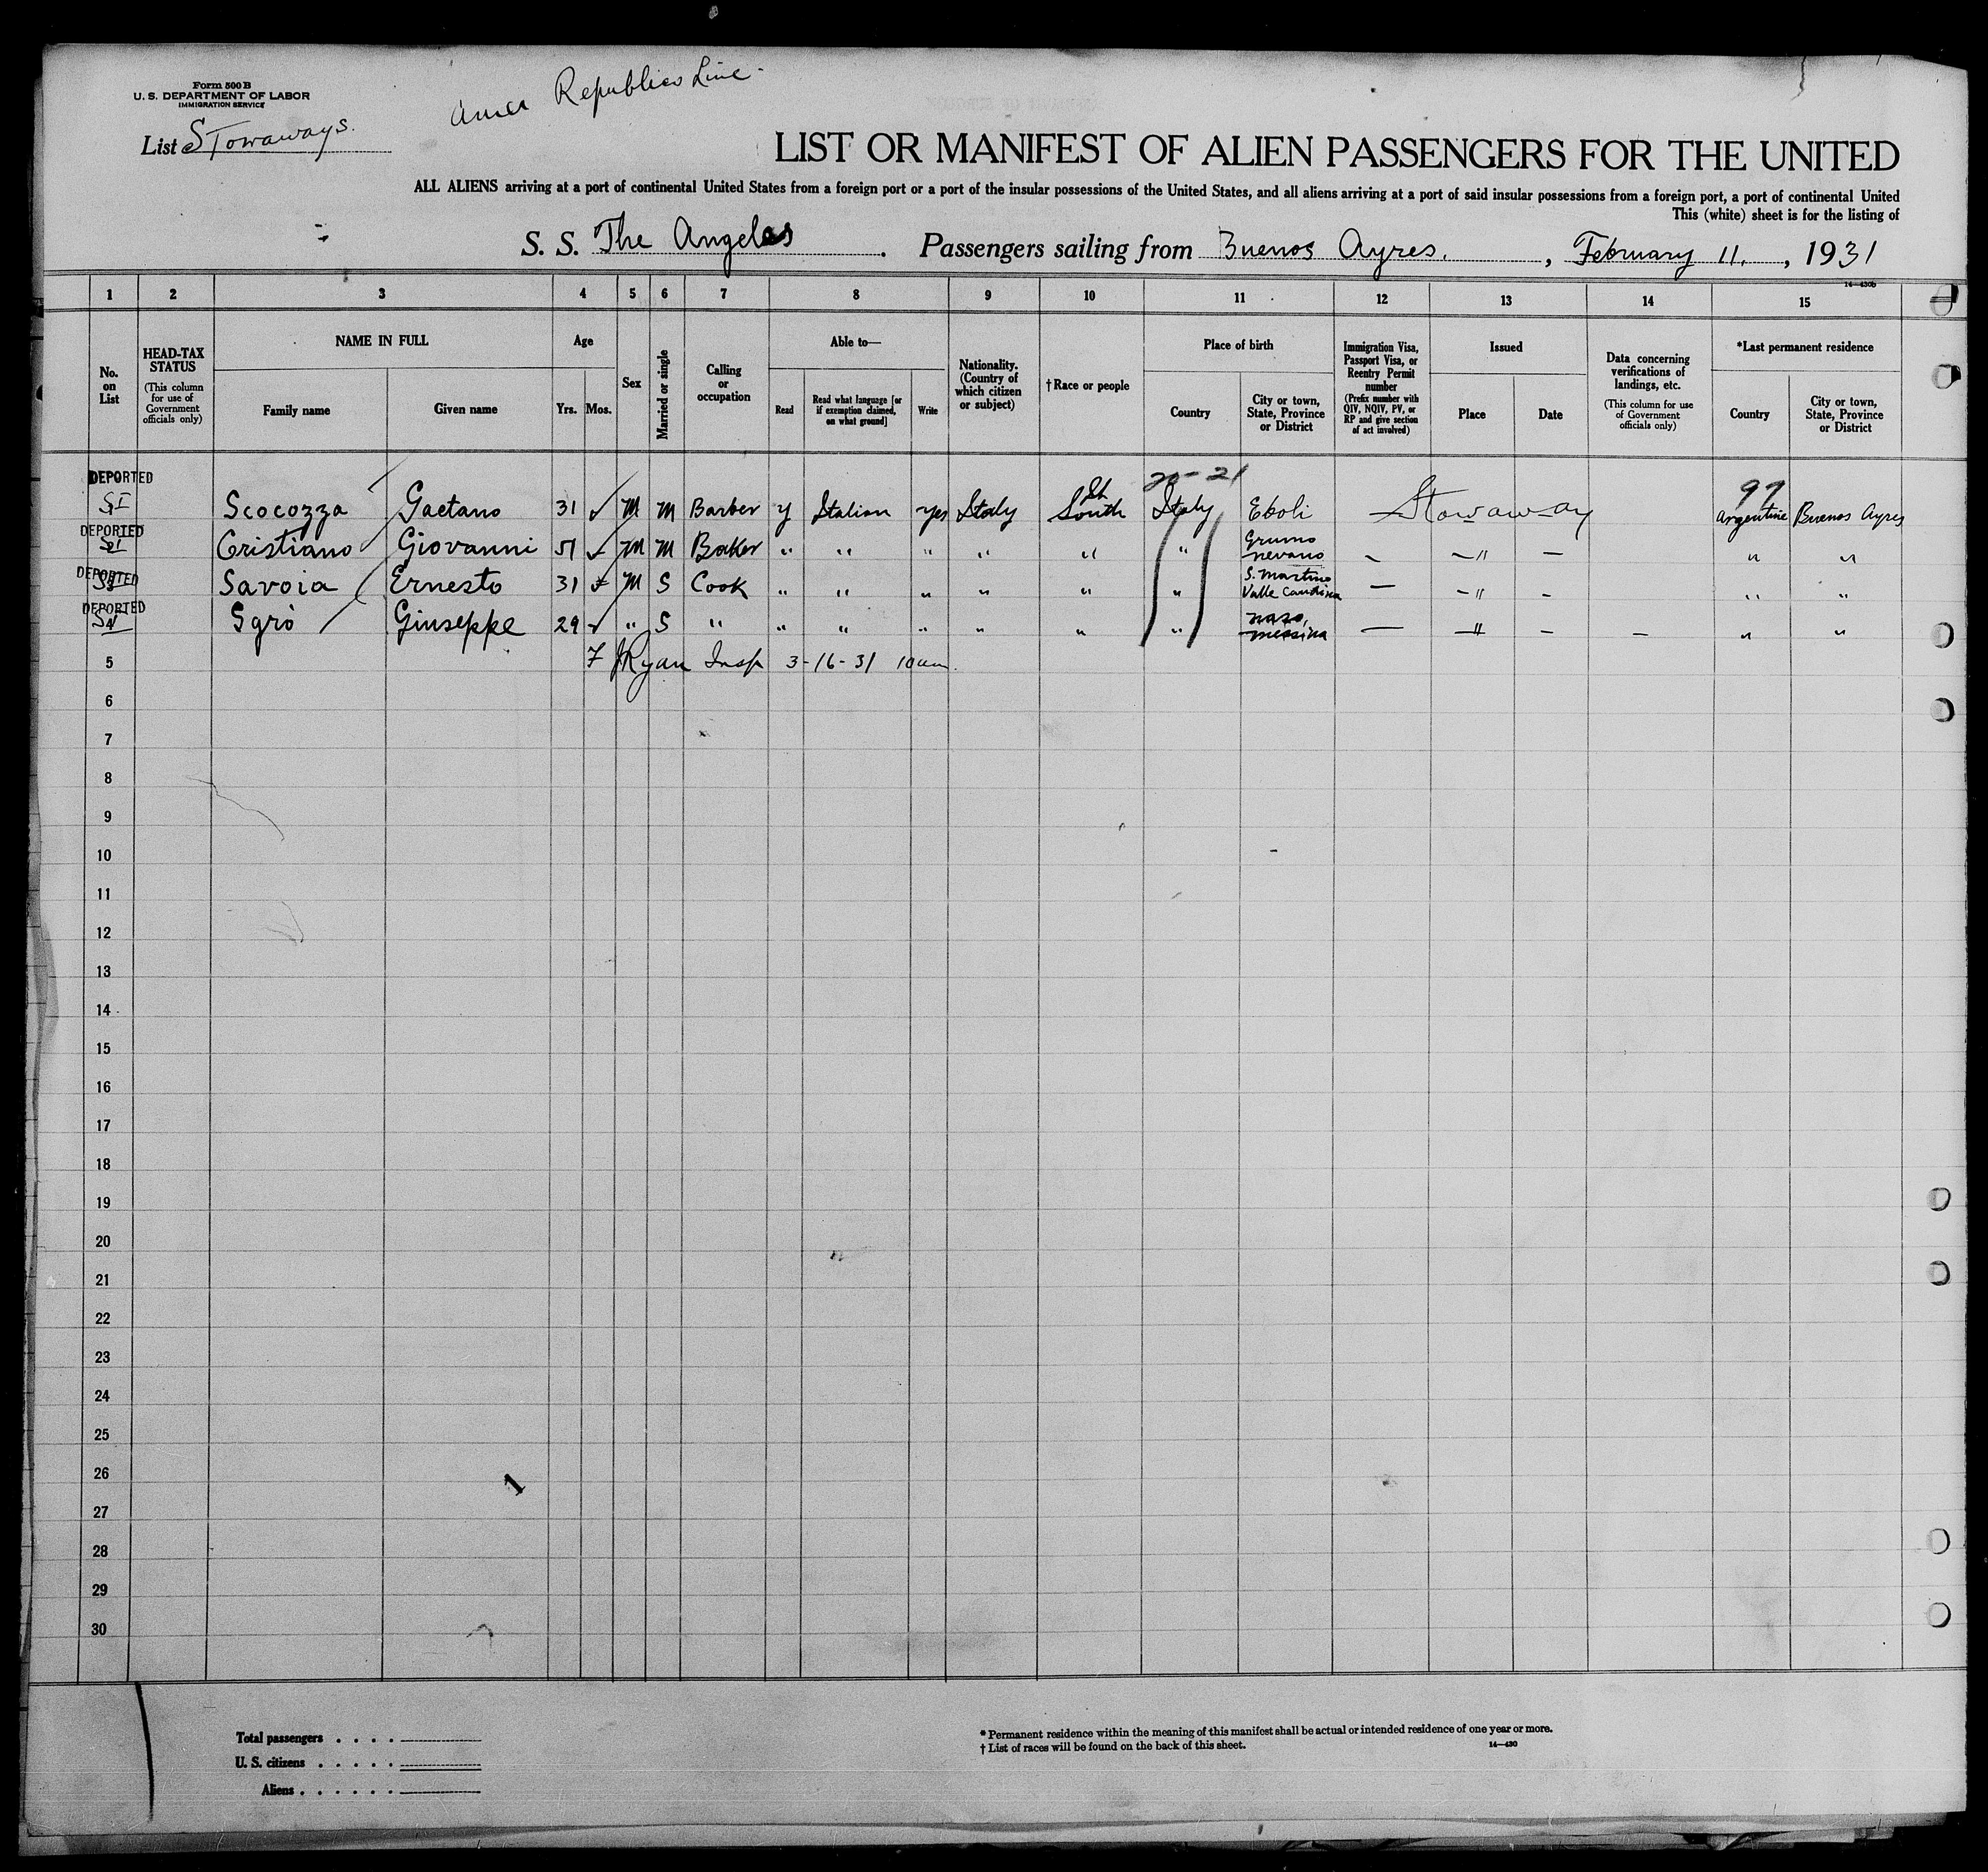 Form 500 B
U. S. DEPARTMENT OF LABOR
IMMIGRATION SERVICE
List Stowaways.
Amer Republics Line -
LIST OR MANIFEST OF ALIEN PASSENGERS FOR THE UNITED
ALL ALIENS arriving at a port of continental United States from a foreign port or a port of the insular possessions of the United States, and all aliens arriving at a port of said insular possessions from a foreign port, a port of continental United
This (white) sheet is for the listing of
S. S. The Angeles. Passengers sailing from Buenos Ayres. , February 11. , 1931
14—430b
1 2 3 4 5 6 7 8 9 10 11 12 13 14 15
No. on List
HEAD-TAX STATUS (This column for use of Government officials only)
NAME IN FULL
Family name
Given name
Age
Yrs. Mos.
Sex
Married or single
Calling or occupation
Able to—
Read
Read what language [or if exemption claimed, on what ground]
Write
Nationality. (Country of which citizen or subject)
† Race or people
Place of birth
Country
City or town, State, Province or District
Immigration Visa, Passport Visa, or Reentry Permit number (Prefix number with QIV, NQIV, PV, or RP and give section of act involved)
Issued
Place
Date
Data concerning verifications of landings, etc. (This column for use of Government officials only)
*Last permanent residence
Country
City or town, State, Province or District
20-21
97
DEPORTED
Scocozza Gaetano 31 ✓ M M Barber y Italian yes Italy South Italy Eboli Stowaway Argentine Buenos Ayres
DEPORTED
Cristiano Giovanni 51 ✓ M M Baker " " " " " " Grumo nevano - - " - " "
DEPORTED
S3 Savoia Ernesto 31 M S Cook " " " " " " S. Martino Valle Caudina - - " - " "
DEPORTED
S4 Sgrò Giuseppe 29 ✓ " S " " " " " " " naso, messina - - " - - " "
5 F J Ryan Insp 3-16-31 10 am.
6
7
8
9
10
11
12
13
14
15
16
17
18
19
20
21
22
23
24
25
26
27
28
29
30
1
Total passengers . . . .
U. S. citizens . . . . .
Aliens . . . . . .
* Permanent residence within the meaning of this manifest shall be actual or intended residence of one year or more.
† List of races will be found on the back of this sheet.
14—430